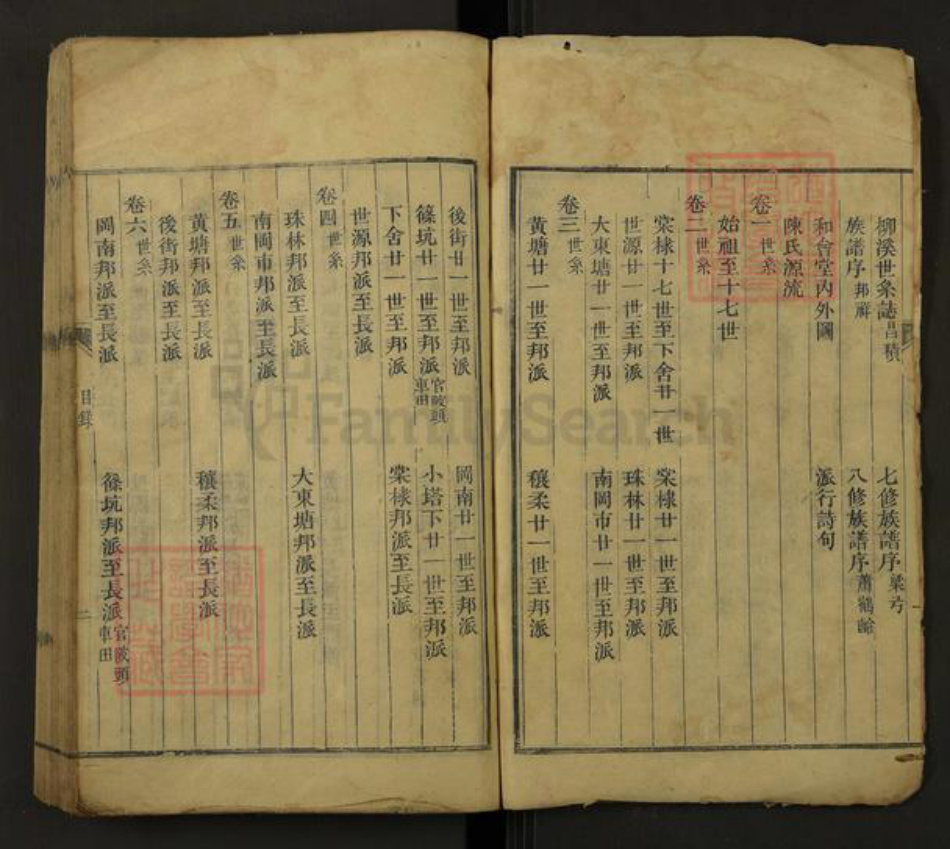 柳溪世系誌昌積 七修族譜序梁兮
族譜序邦 八修族譜序蕭鶴齡
和會堂內外圖 派行詩句
陳氏源流
卷一世系
始祖至十七世
卷二世系
棠棣十七世至下舍廿一世 棠棣廿一世至邦派
世源廿一世至邦派 珠林廿一世至邦派
大東塘廿一世至邦派 南岡市廿一世至邦派
卷三世系
黃塘廿一世至邦派 穰柔廿一世至邦派
後街廿一世至邦派 岡南廿一世至邦派
篠坑廿一世至邦派官陂頭車田 小塔下廿一世至邦派
下舍廿一世至邦派 棠棣邦派至長派
世源邦派至長派
卷四世系
珠林邦派至長派 大東塘邦派至長派
南岡市邦派至長派
卷五世系
黃塘邦派至長派 穰柔邦派至長派
後街邦派至長派
卷六世系
岡南邦派至長派 篠坑邦派至長派官陂頭車田
目錄 二
FamilySearch